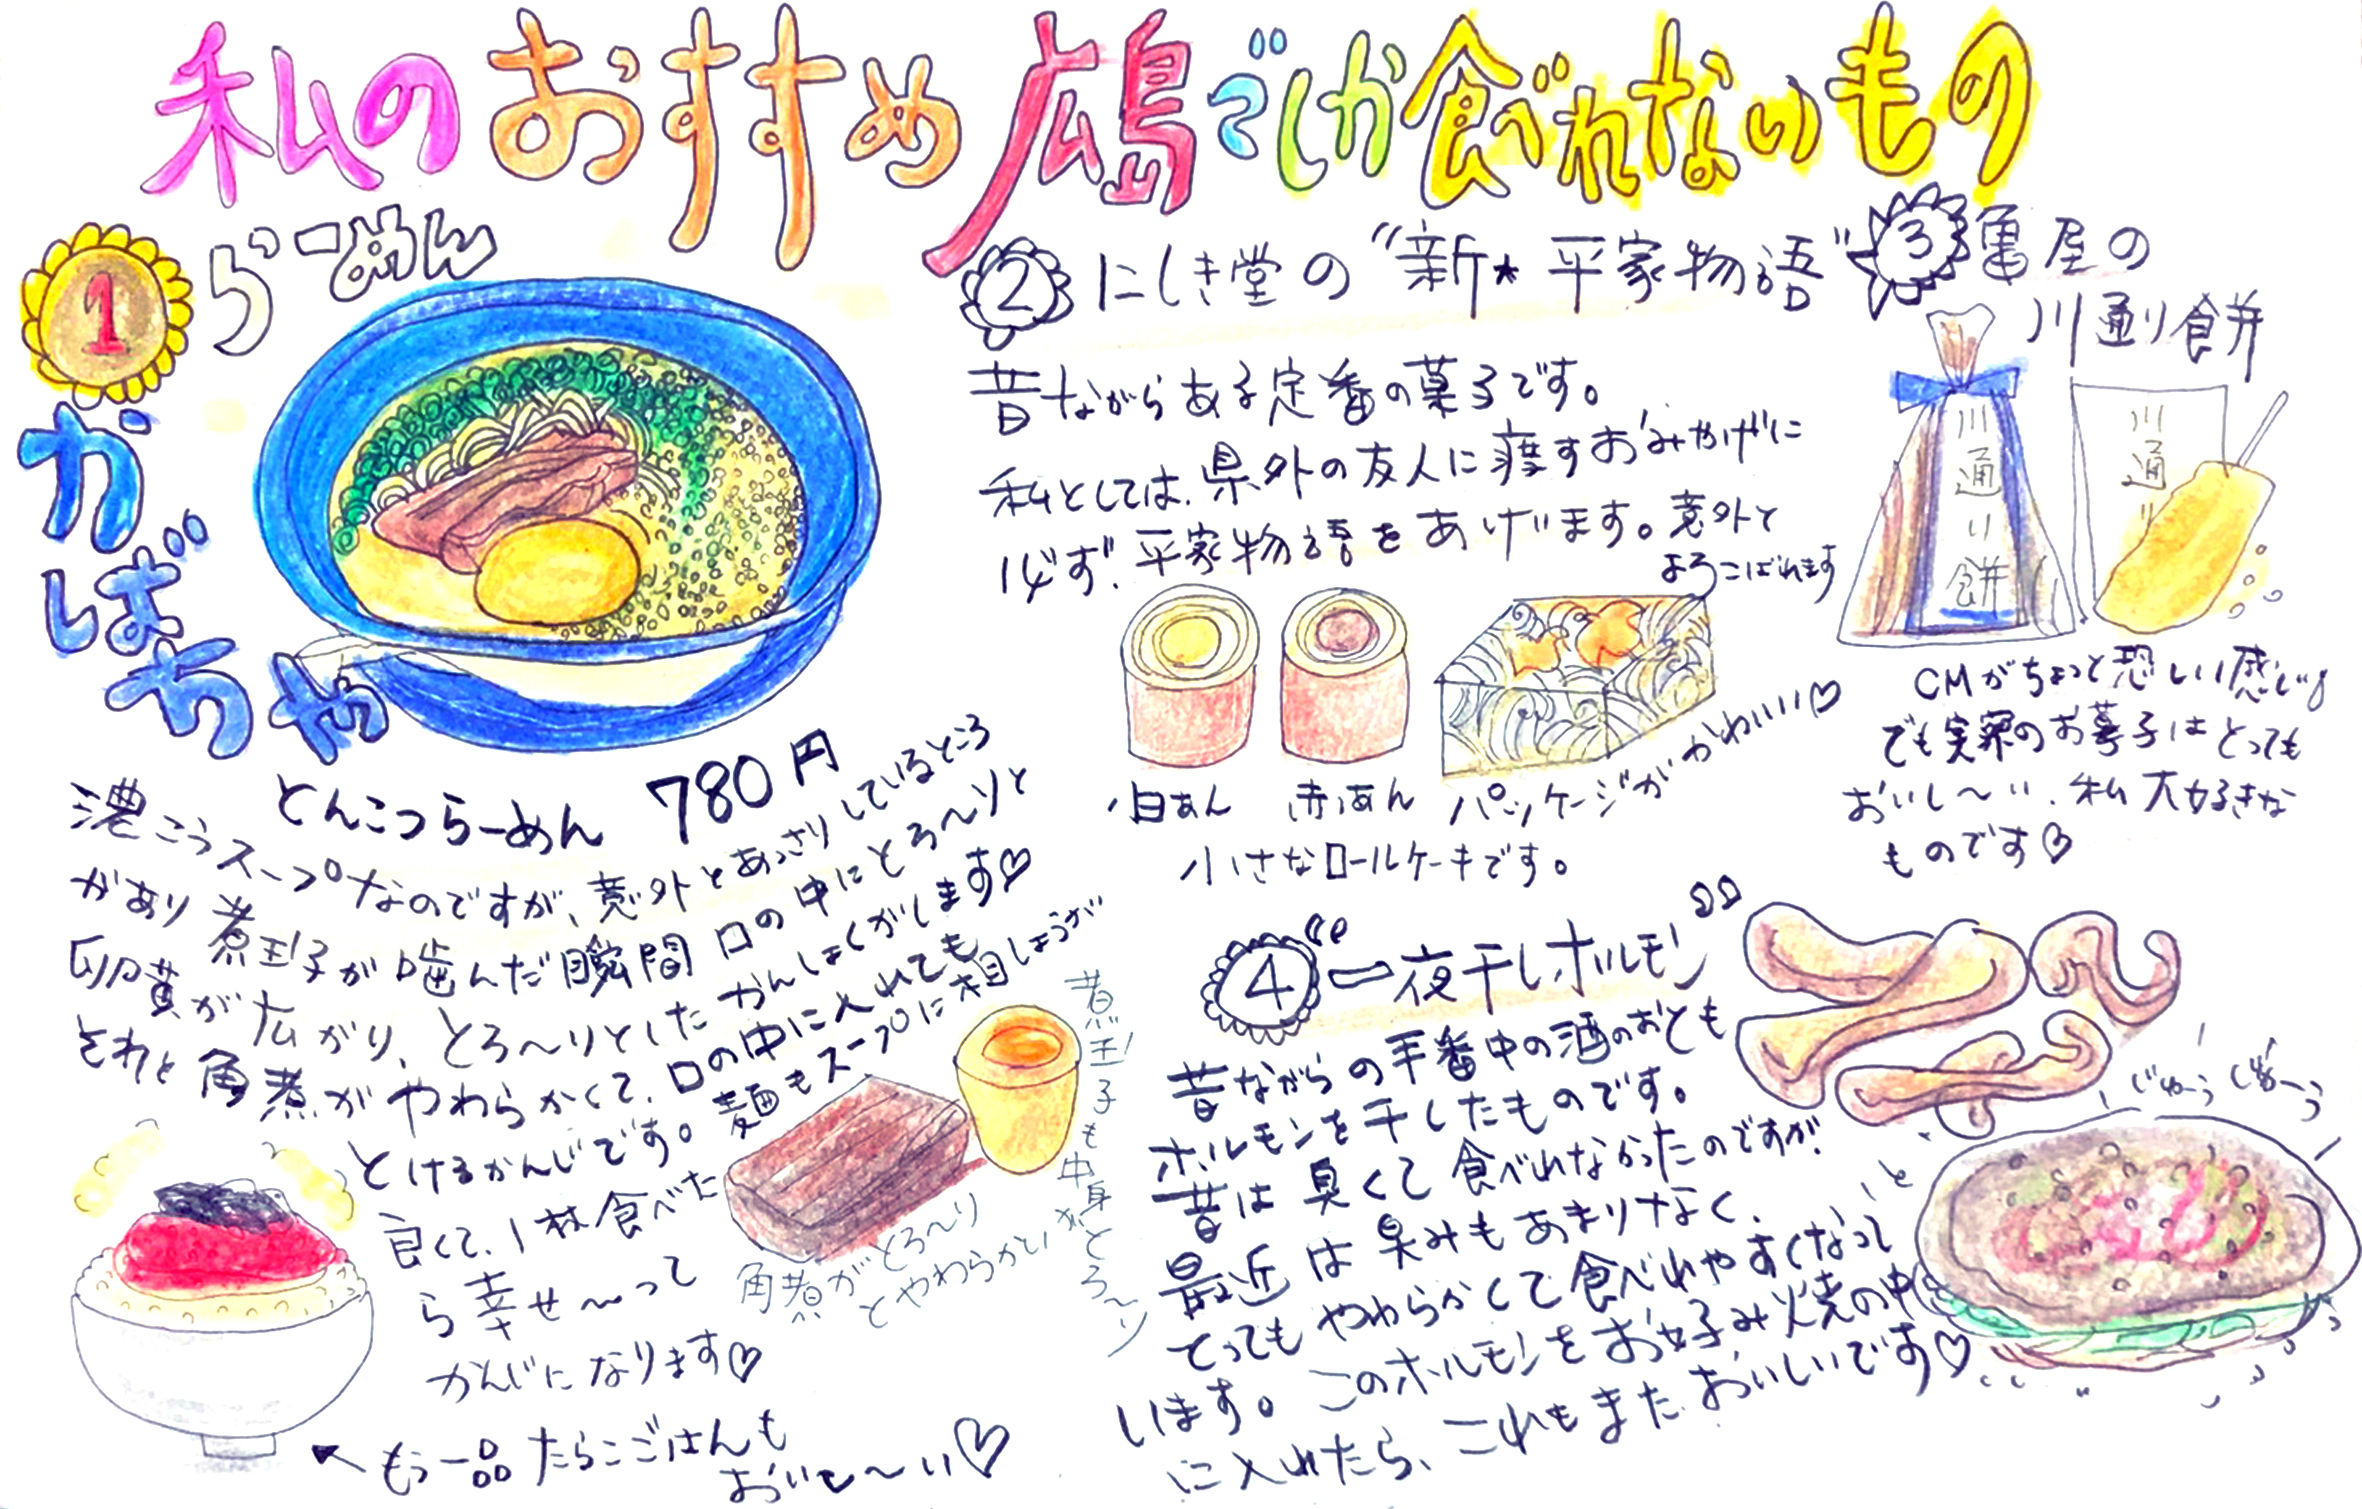 私のおすすめ広島でしか食べれないもの
1
らーめん
かばちや
とんこつらーめん 780円
濃こうスープなのですが、意外とあっさりしているところ
があり煮玉子が噛んだ瞬間口の中にとろ〜りと
卵黄が広がり、とろ〜りとしたかんしょくがします♡
それと角煮がやわらかくて、口の中に入れても
とけるかんじです。麺もスープに相しょうが
良くて、1杯食べた
ら幸せ〜って
かんじになります♡
煮玉子も中身がとろ〜り
角煮がとろ〜り
とやわらかい
もう一品たらこごはんも
おいし〜い♡
2 にしき堂の"新★平家物語"
昔ながらある定番の菓子です。
私としては、県外の友人に渡すおみやげに
必ず、平家物語をあげます。意外と
よろこばれます
白あん
赤あん
パッケージがかわいい♡
小さなロールケーキです。
3 亀屋の
川通り餅
川通り餅
川通り
CMがちょっと恐しい感じ
でも実際のお菓子はとっても
おいし〜い、私大好きな
ものです♡
4 "一夜干しホルモン"
昔ながらの手番中の酒のおとも
ホルモンを干したものです。
昔は臭くて食べれなかったのですが、
最近は臭みもあまりなく、
とってもやわらかくて食べれやすくなって
います。このホルモンをお好み焼の中
に入れたら、これもまたおいしいです♡
じゅーぅ じゅーぅ